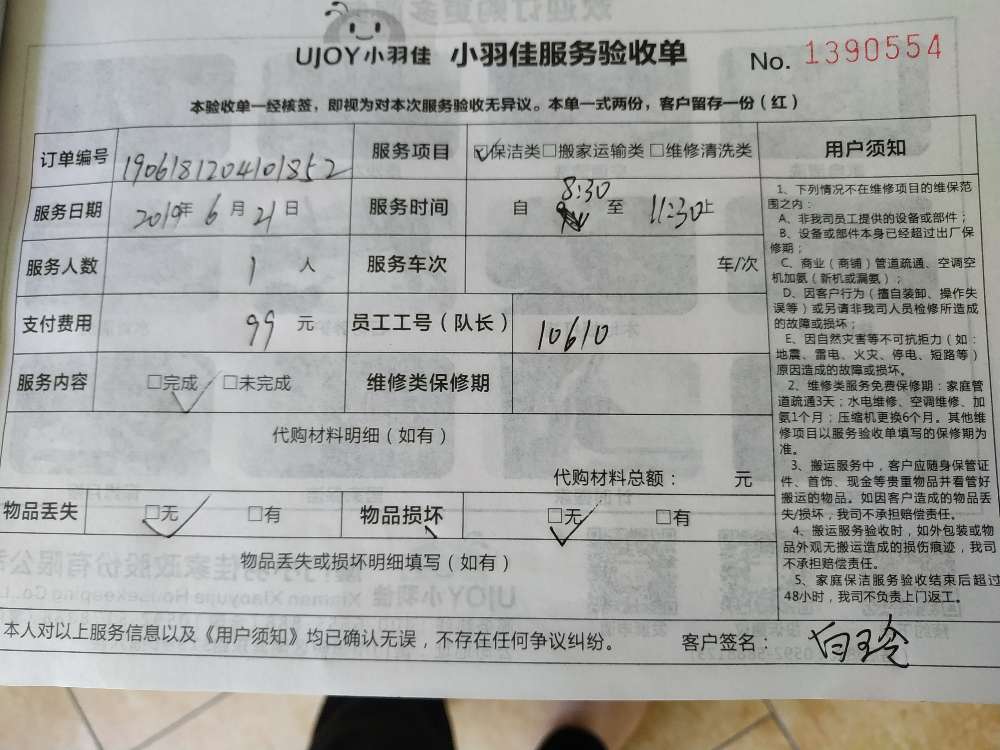 UJOY小羽佳 小羽佳服务验收单 No. 1390554
本验收单一经核签，即视为对本次服务验收无异议。本单一式两份，客户留存一份（红）
订单编号 1906181204101852 服务项目 ☑保洁类□搬家运输类□维修清洗类
服务日期 2019年 6月 21日 服务时间 自 8:30 至 11:30 止
服务人数 1 人 服务车次 车/次
支付费用 99 元 员工工号（队长） 10610
服务内容 ☑完成 □未完成 维修类保修期
代购材料明细（如有）
代购材料总额： 元
物品丢失 ☑无 □有 物品损坏 ☑无 □有
物品丢失或损坏明细填写（如有）
用户须知
1、下列情况不在维修项目的维保范
围之内：
A、非我司员工提供的设备或部件；
B、设备或部件本身已经超过出厂保
修期；
C、商业（商铺）管道疏通、空调空
机加氨（新机或漏氨）；
D、因客户行为（擅自装卸、操作失
误等）或另请非我司人员检修所造成
的故障或损坏；
E、因自然灾害等不可抗拒力（如：
地震、雷电、火灾、停电、短路等）
原因造成的故障或损坏。
2、维修类服务免费保修期：家庭管
道疏通3天；水电维修、空调维修、加
氨1个月；压缩机更换6个月。其他维
修项目以服务验收单填写的保修期为
准。
3、搬运服务中，客户应随身保管证
件、首饰、现金等贵重物品并看管好
搬运的物品。如因客户造成的物品丢
失/损坏，我司不承担赔偿责任。
4、搬运服务验收时，如外包装或物
品外观无搬运造成的损伤痕迹，我司
不承担赔偿责任。
5、家庭保洁服务验收结束后超过
48小时，我司不负责上门返工。
本人对以上服务信息以及《用户须知》均已确认无误，不存在任何争议纠纷。 客户签名： 白玲